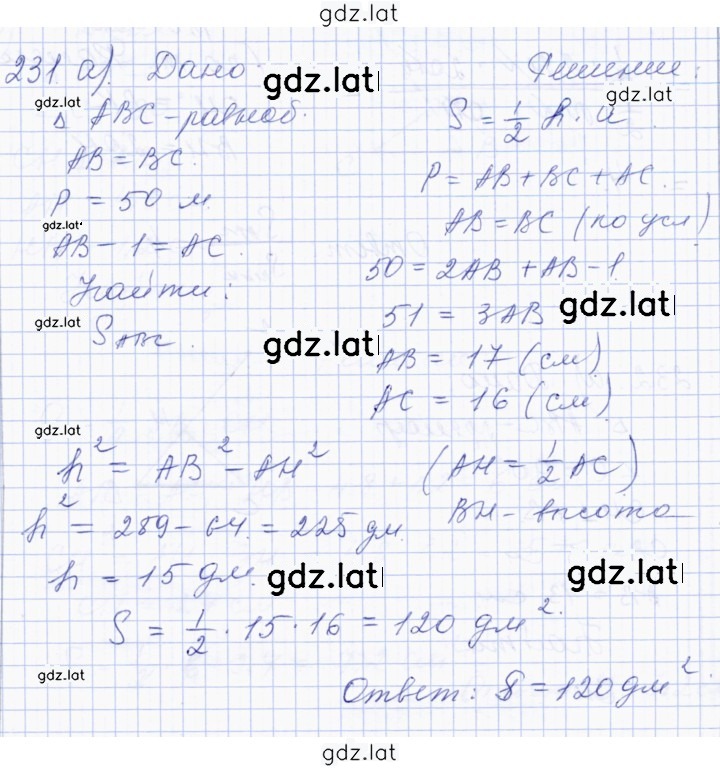 gdz.latl
231. а). Дано: Решение:
gdz.latl
gdz.latl gdz.latl
Δ ABC - равноб. S = 1/2 h · a.
AB = BC. P = AB + BC + AC.
P = 50 м. AB = BC (по усл)
gdz.latl
AB - 1 = AC. 50 = 2AB + AB - 1.
Найти: 51 = 3AB gdz.latl
gdz.latl
S ABC. gdz.latl AB = 17 (см)
AC = 16 (см).
gdz.latl
h² = AB² - AH² (AH = 1/2 AC)
h² = 289 - 64 = 225 дм. BH - высота
h = 15 дм. gdz.latl gdz.latl
S = 1/2 · 15 · 16 = 120 дм².
gdz.latl
Ответ: S = 120 дм².
gdz.latl